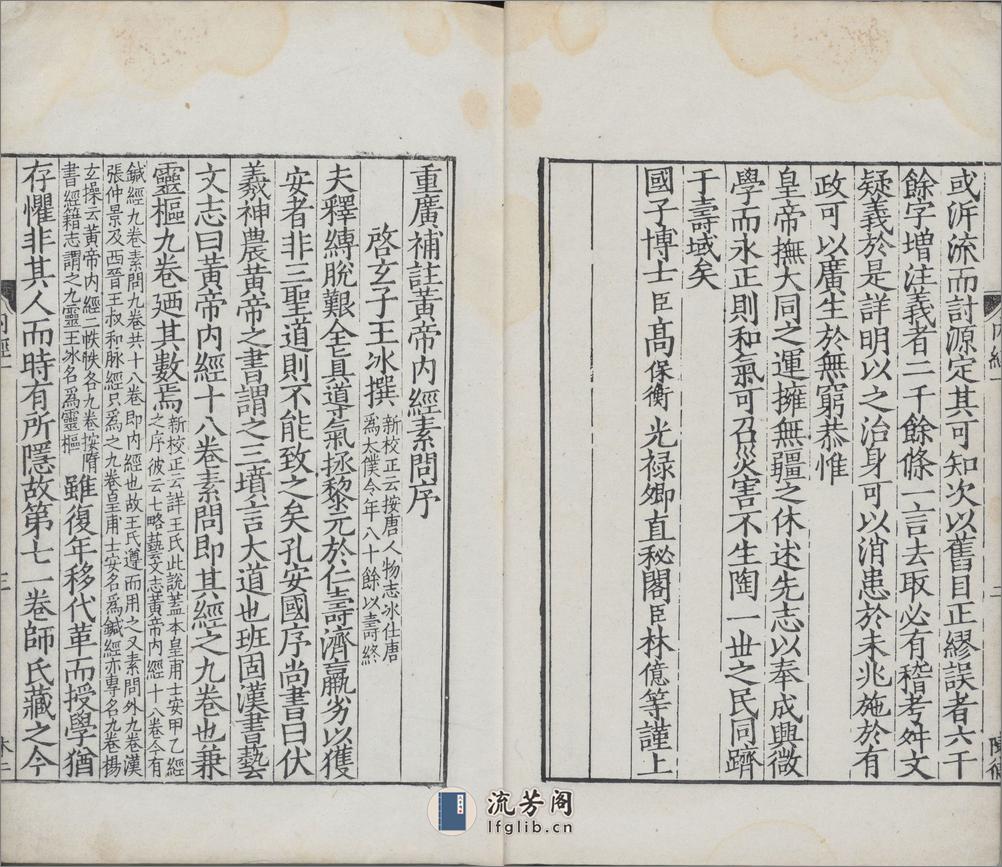 或泝流而討源定其可知次以舊目正繆誤者六千
餘字增注義者二千餘條一言去取必有稽考舛文
疑義於是詳明以之治身可以消患於未兆施於有
政可以廣生於無窮恭惟
皇帝撫大同之運擁無疆之休述先志以奉成興微
學而永正則和氣可召災害不生陶一世之民同躋
于壽域矣
國子博士臣高保衡光祿卿直秘閣臣林億等謹上
内經一
二
重廣補註黃帝內經素問序
啓玄子王冰撰新校正云按唐人物志冰仕唐
爲太僕令年八十餘以壽終
夫釋縛脫艱全眞導氣拯黎元於仁壽濟羸劣以獲
安者非三聖道則不能致之矣孔安國序尚書曰伏
羲神農黃帝之書謂之三墳言大道也班固漢書藝
文志曰黃帝內經十八卷素問即其經之九卷也兼
靈樞九卷廼其數焉新校正云詳王氏此說蓋本皇甫士安甲乙經
之序彼云七略藝文志黃帝內經十八卷今有
鍼經九卷素問九卷共十八卷即內經也故王氏遵而用之又素問外九卷漢
張仲景及西晉王叔和脉經只爲之九卷皇甫士安名爲鍼經亦專名九卷楊
玄操云黃帝內經二帙帙各九卷按隋
書經籍志謂之九靈王冰名爲靈樞
雖復年移代革而授學猶
存懼非其人而時有所隱故第七一卷師氏藏之今
内經一
三
流芳阁
lfglib.cn